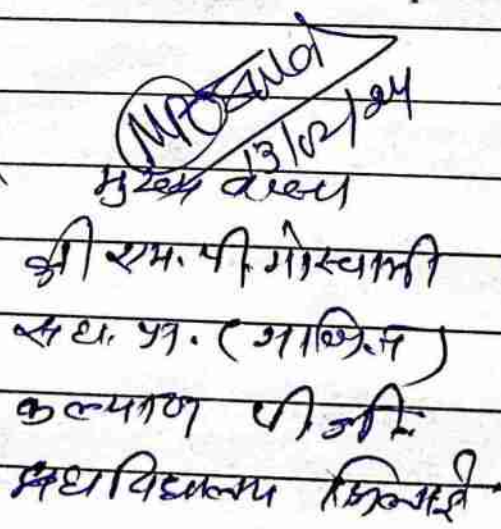 13/02/24
मुख्य वक्ता
श्री एम. पी. गोस्वामी
सहा. प्रा. (वाणिज्य)
कल्याण पी.जी.
महाविद्यालय भिलाई